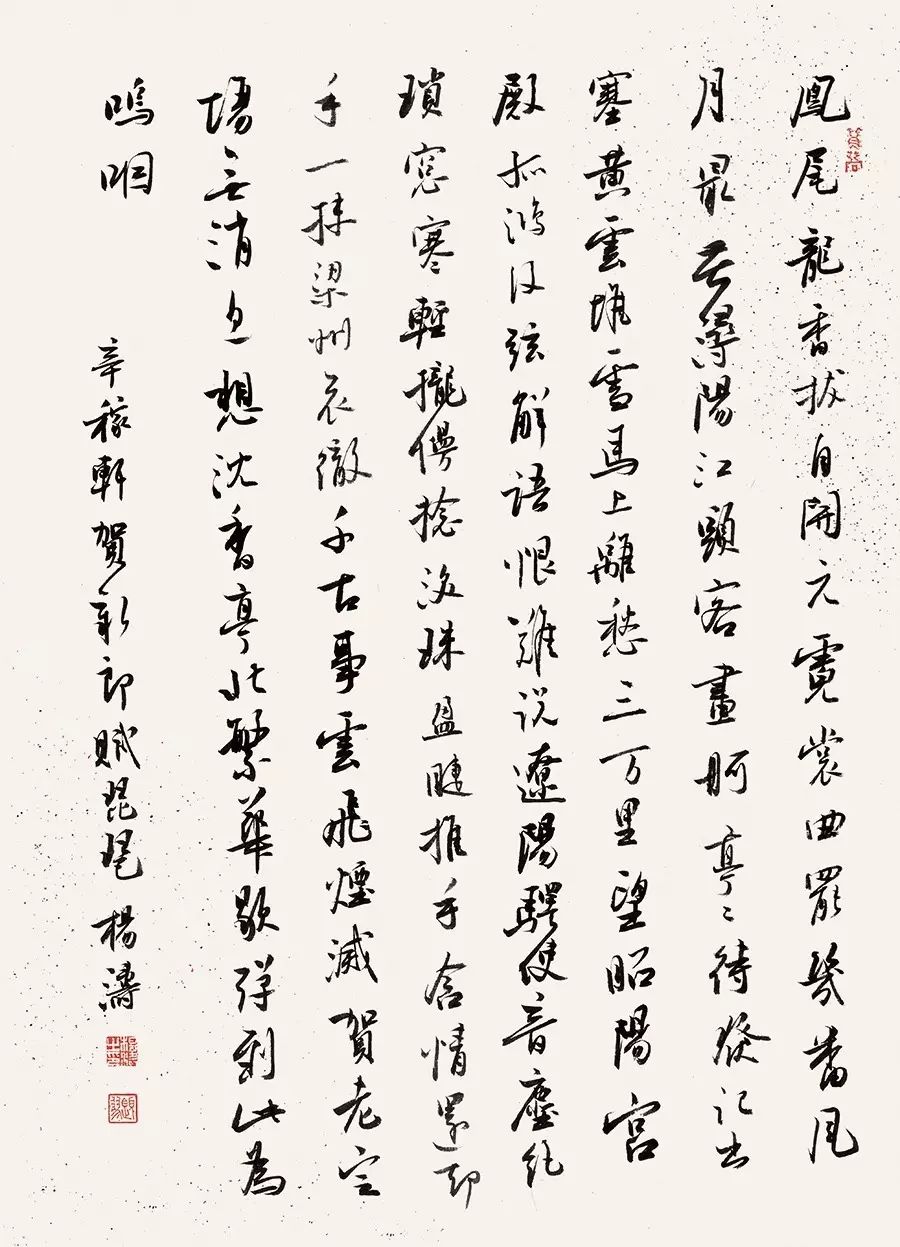 鳳尾龍香拔自開元霓裳曲罷幾番風
月最苦潯陽江頭客畫舸亭亭待發記出
塞黄雲堆雪馬上離愁三万里望昭陽宮
殿孤鴻沒弦解語恨難説遼陽驛使音塵絶
瑣窓寒輕攏慢捻淚珠盈睫推手含情還却
手一抹梁州哀徹千古事雲飛煙滅賀老定
場無消息想沈香亭北繁華歇彈到此為
嗚咽
辛稼軒賀新郎賦琵琶 楊濤